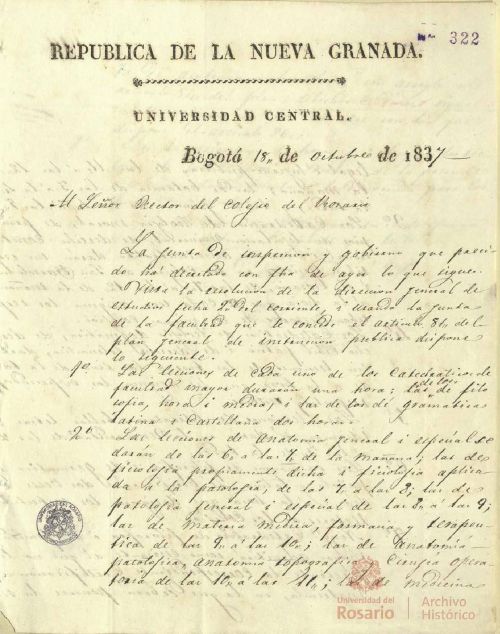 Nº 322
REPUBLICA DE LA NUEVA GRANADA.
UNIVERSIDAD CENTRAL.
Bogotá 18, de Octubre de 1837
Al Señor Rector del Colegio del Rosario
La Junta de inspeccion y gobierno que preci-
do ha decretado con fha de ayer lo que sigue.
Vista la resolucion de la direccion general de
estudios fecha 2 del corriente, i usando la Junta
de la facultad que le concede el articulo 86 del
plan general de instruccion publica dispone
lo siguiente.
1º Las lecciones de cada uno de los Catedraticos de
facultad mayor duraran una hora: las de los de filo
sofia, hora i media; i las de los de gramaticas
latina i Castellana dos horas.
2º Las lecciones de anatomia general i especial se
daran de las 6 a las 7 de la mañana; las de
fisiologia propiamente dicha i fisiologia aplica
da á la patologia, de las 7 á las 8; las de
patologia general i especial de las 8 á las 9;
las de Materia medica, farmacia y terapeu-
tica de las 9 á las 10; las de anatomia
patologica, anatomia topografica i Cirugia opera
toria de las 10 á las 11; las de medicina
Universidad del
Rosario
Archivo
Histórico